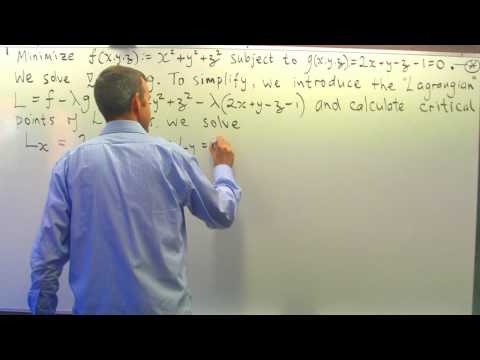 Minimize f(x,y,z) := x² + y² + z² subject to g(x,y,z) = 2x + y - z - 1 = 0.
We solve g. To simplify, we introduce the "Lagrangian"
L = f - λg y² + z² - λ(2x + y - z - 1) and calculate critical
points of L we solve
Lx = Ly =